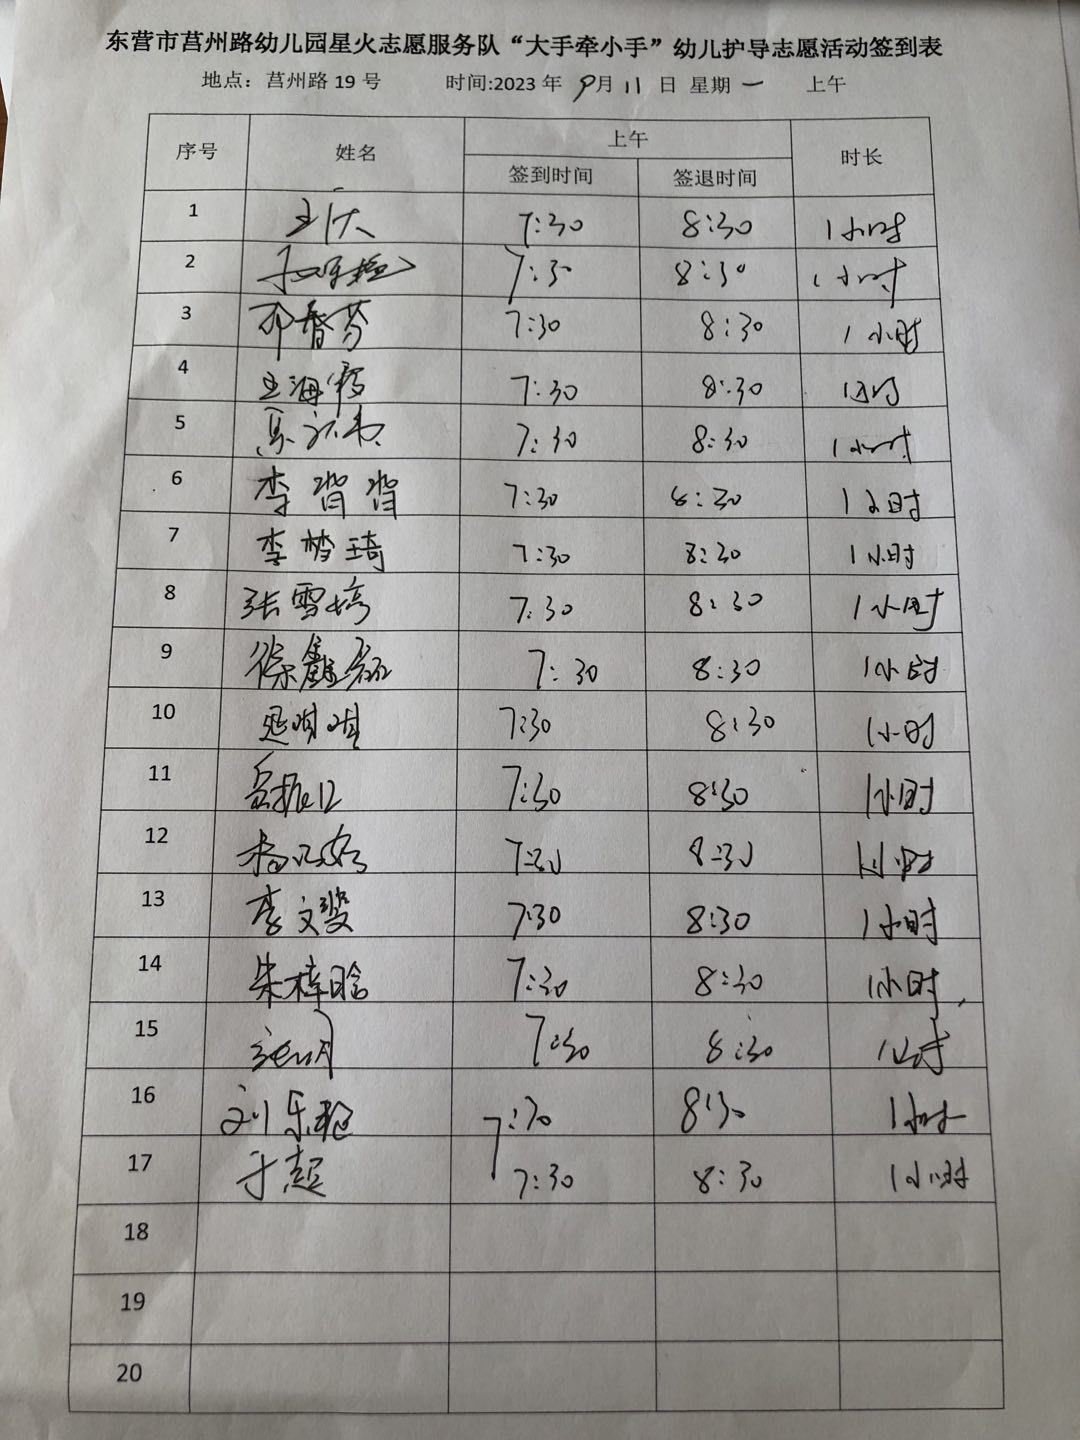 东营市莒州路幼儿园星火志愿服务队“大手牵小手”幼儿护导志愿活动签到表
地点：莒州路 19 号 时间:2023 年 9月 11 日 星期 一 上午
序号 姓名 上午 时长
签到时间 签退时间
1 7:30 8:30 1小时
2 7:30 8:30 1小时
3 香芬 7:30 8:30 1小时
4 王海霞 7:30 8:30 1小时
5 7:30 8:30 1小时
6 李 7:30 8:30 1小时
7 李梦琦 7:30 8:30 1小时
8 张雪婷 7:30 8:30 1小时
9 徐鑫磊 7:30 8:30 1小时
10 7:30 8:30 1小时
11 7:30 8:30 1小时
12 7:30 8:30 1小时
13 李文雯 7:30 8:30 1小时
14 朱梓晗 7:30 8:30 1小时
15 7:30 8:30 1小时
16 刘乐 7:30 8:30 1小时
17 于超 7:30 8:30 1小时
18
19
20